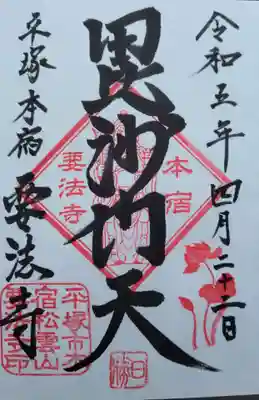 令和五年 四月二十二日
毘沙門天
本宿
要法寺
平塚本宿 要法寺
平塚市本
宿松雲山